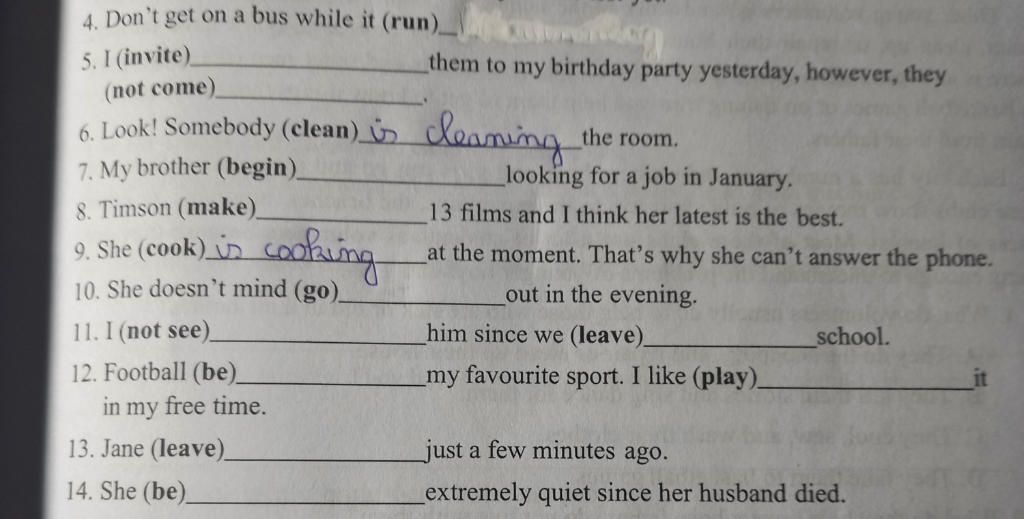 4. Don't get on a bus while it (run)_
5. I (invite)____________________them to my birthday party yesterday, however, they
(not come)__________________.
6. Look! Somebody (clean) is cleaning the room.
7. My brother (begin)__________________looking for a job in January.
8. Timson (make)_______________13 films and I think her latest is the best.
9. She (cook) is cooking at the moment. That's why she can't answer the phone.
10. She doesn't mind (go)______________out in the evening.
11. I (not see)__________________him since we (leave)_______________school.
12. Football (be)________________my favourite sport. I like (play)__________________it
in my free time.
13. Jane (leave)_________________just a few minutes ago.
14. She (be)____________________extremely quiet since her husband died.